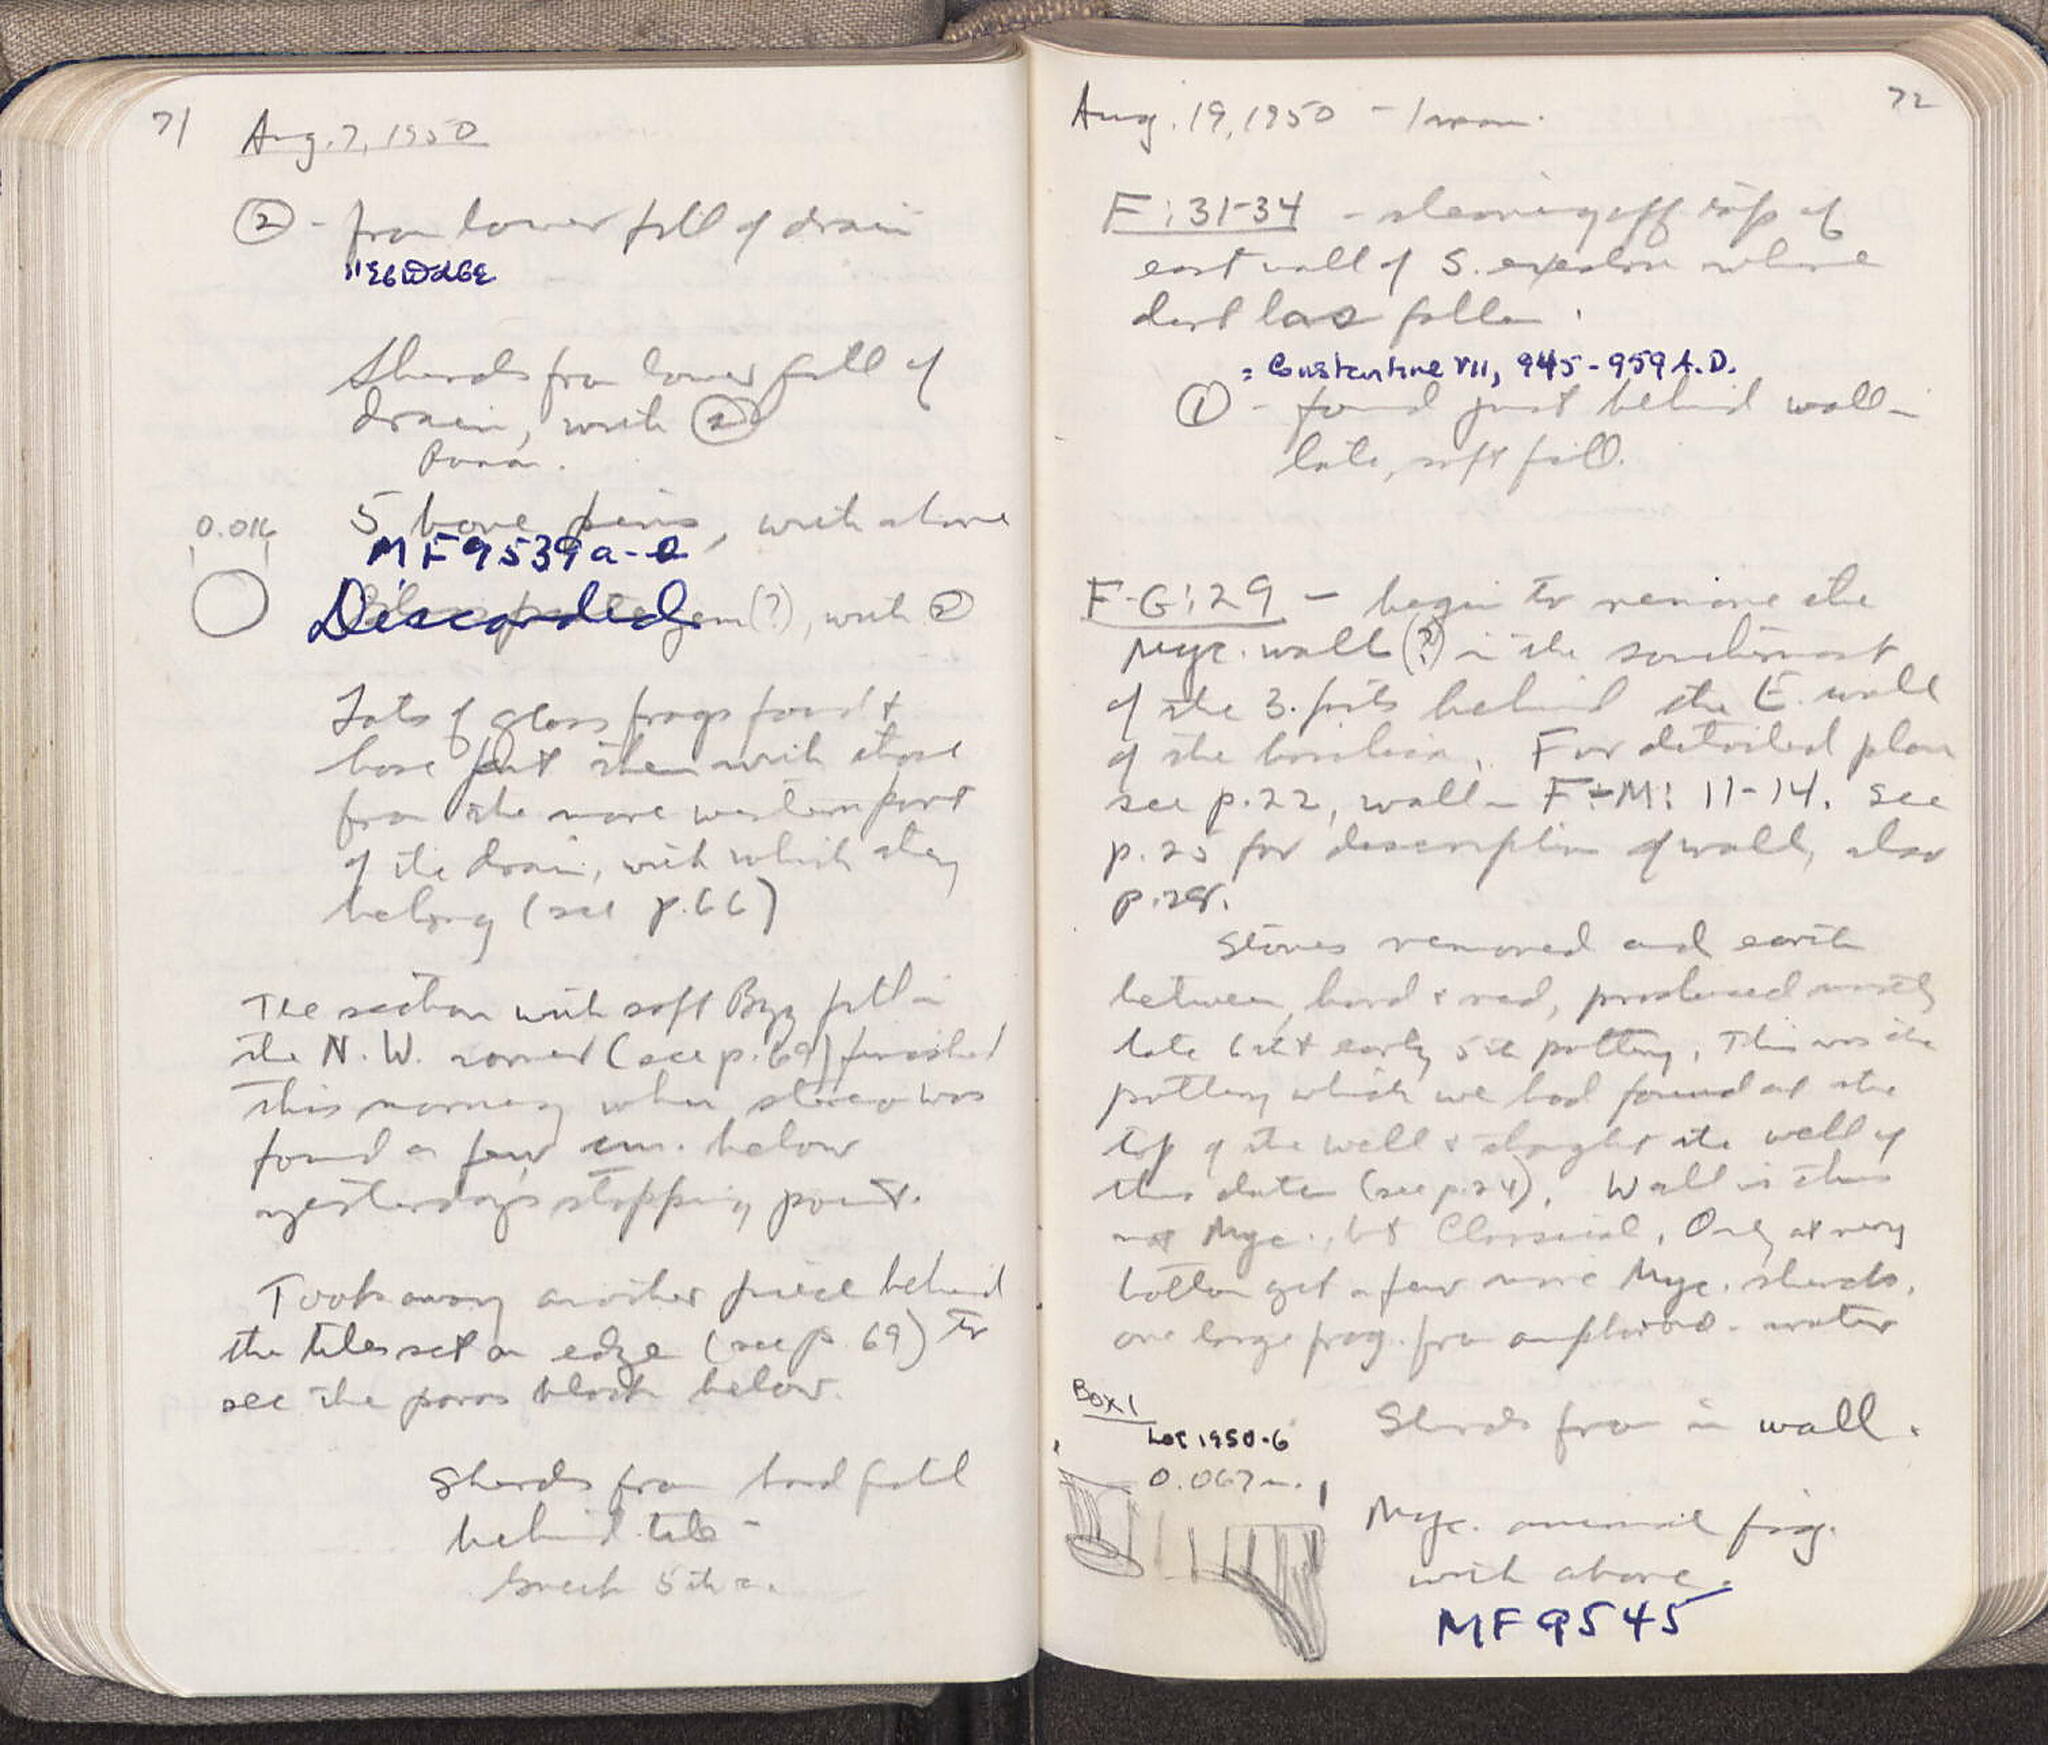 71
Aug. 7, 1950
② - from lower fill of drain
Sherds from lower fill of
drain, with ②
Roman.
0.016
5 bone pins, with above
MF 9539 a-e
Discarded gem (?), with ②
Lots of glass frags found &
have put them with those
from the more western part
of the drain, with which they
belong (see p. 66)
The section with soft Byz fill in
the N.W. corner (see p. 69) finished
this morning when stereo was
found a few cm. below
yesterday's stopping point.
Took away another piece behind
the tiles set on edge (see p. 69) to
see the poros block below.
Sherds from hard fill
behind tile -
Greek 5th c.
72
Aug. 19, 1950 - 1 man.
F:31-34 - cleaning off top of
east wall of S. exedra where
dirt has fallen.
= Constantine VII, 945-959 A.D.
① - found just behind wall in
late, soft fill.
F-G:29 - begin to remove the
Myc. wall (?) in the southernmost
of the 3 pits behind the E. wall
of the basilica. For detailed plan
see p. 22, wall in F-M: 11-14. See
p. 25 for description of wall, also
p. 28.
Stones removed and earth
between, hard & red, produced mostly
late 6th & early 5th pottery. This was the
pottery which we had found at the
top of the well & thought the well of
this date (see p. 24). Wall is thus
not Myc., but Classical. Only at very
bottom get a few more Myc. sherds,
one large frag. from amphora - water
Box 1
Lot 1950-6
Sherds from in wall.
0.067 m.
Myc. animal fig.
with above.
MF 9545